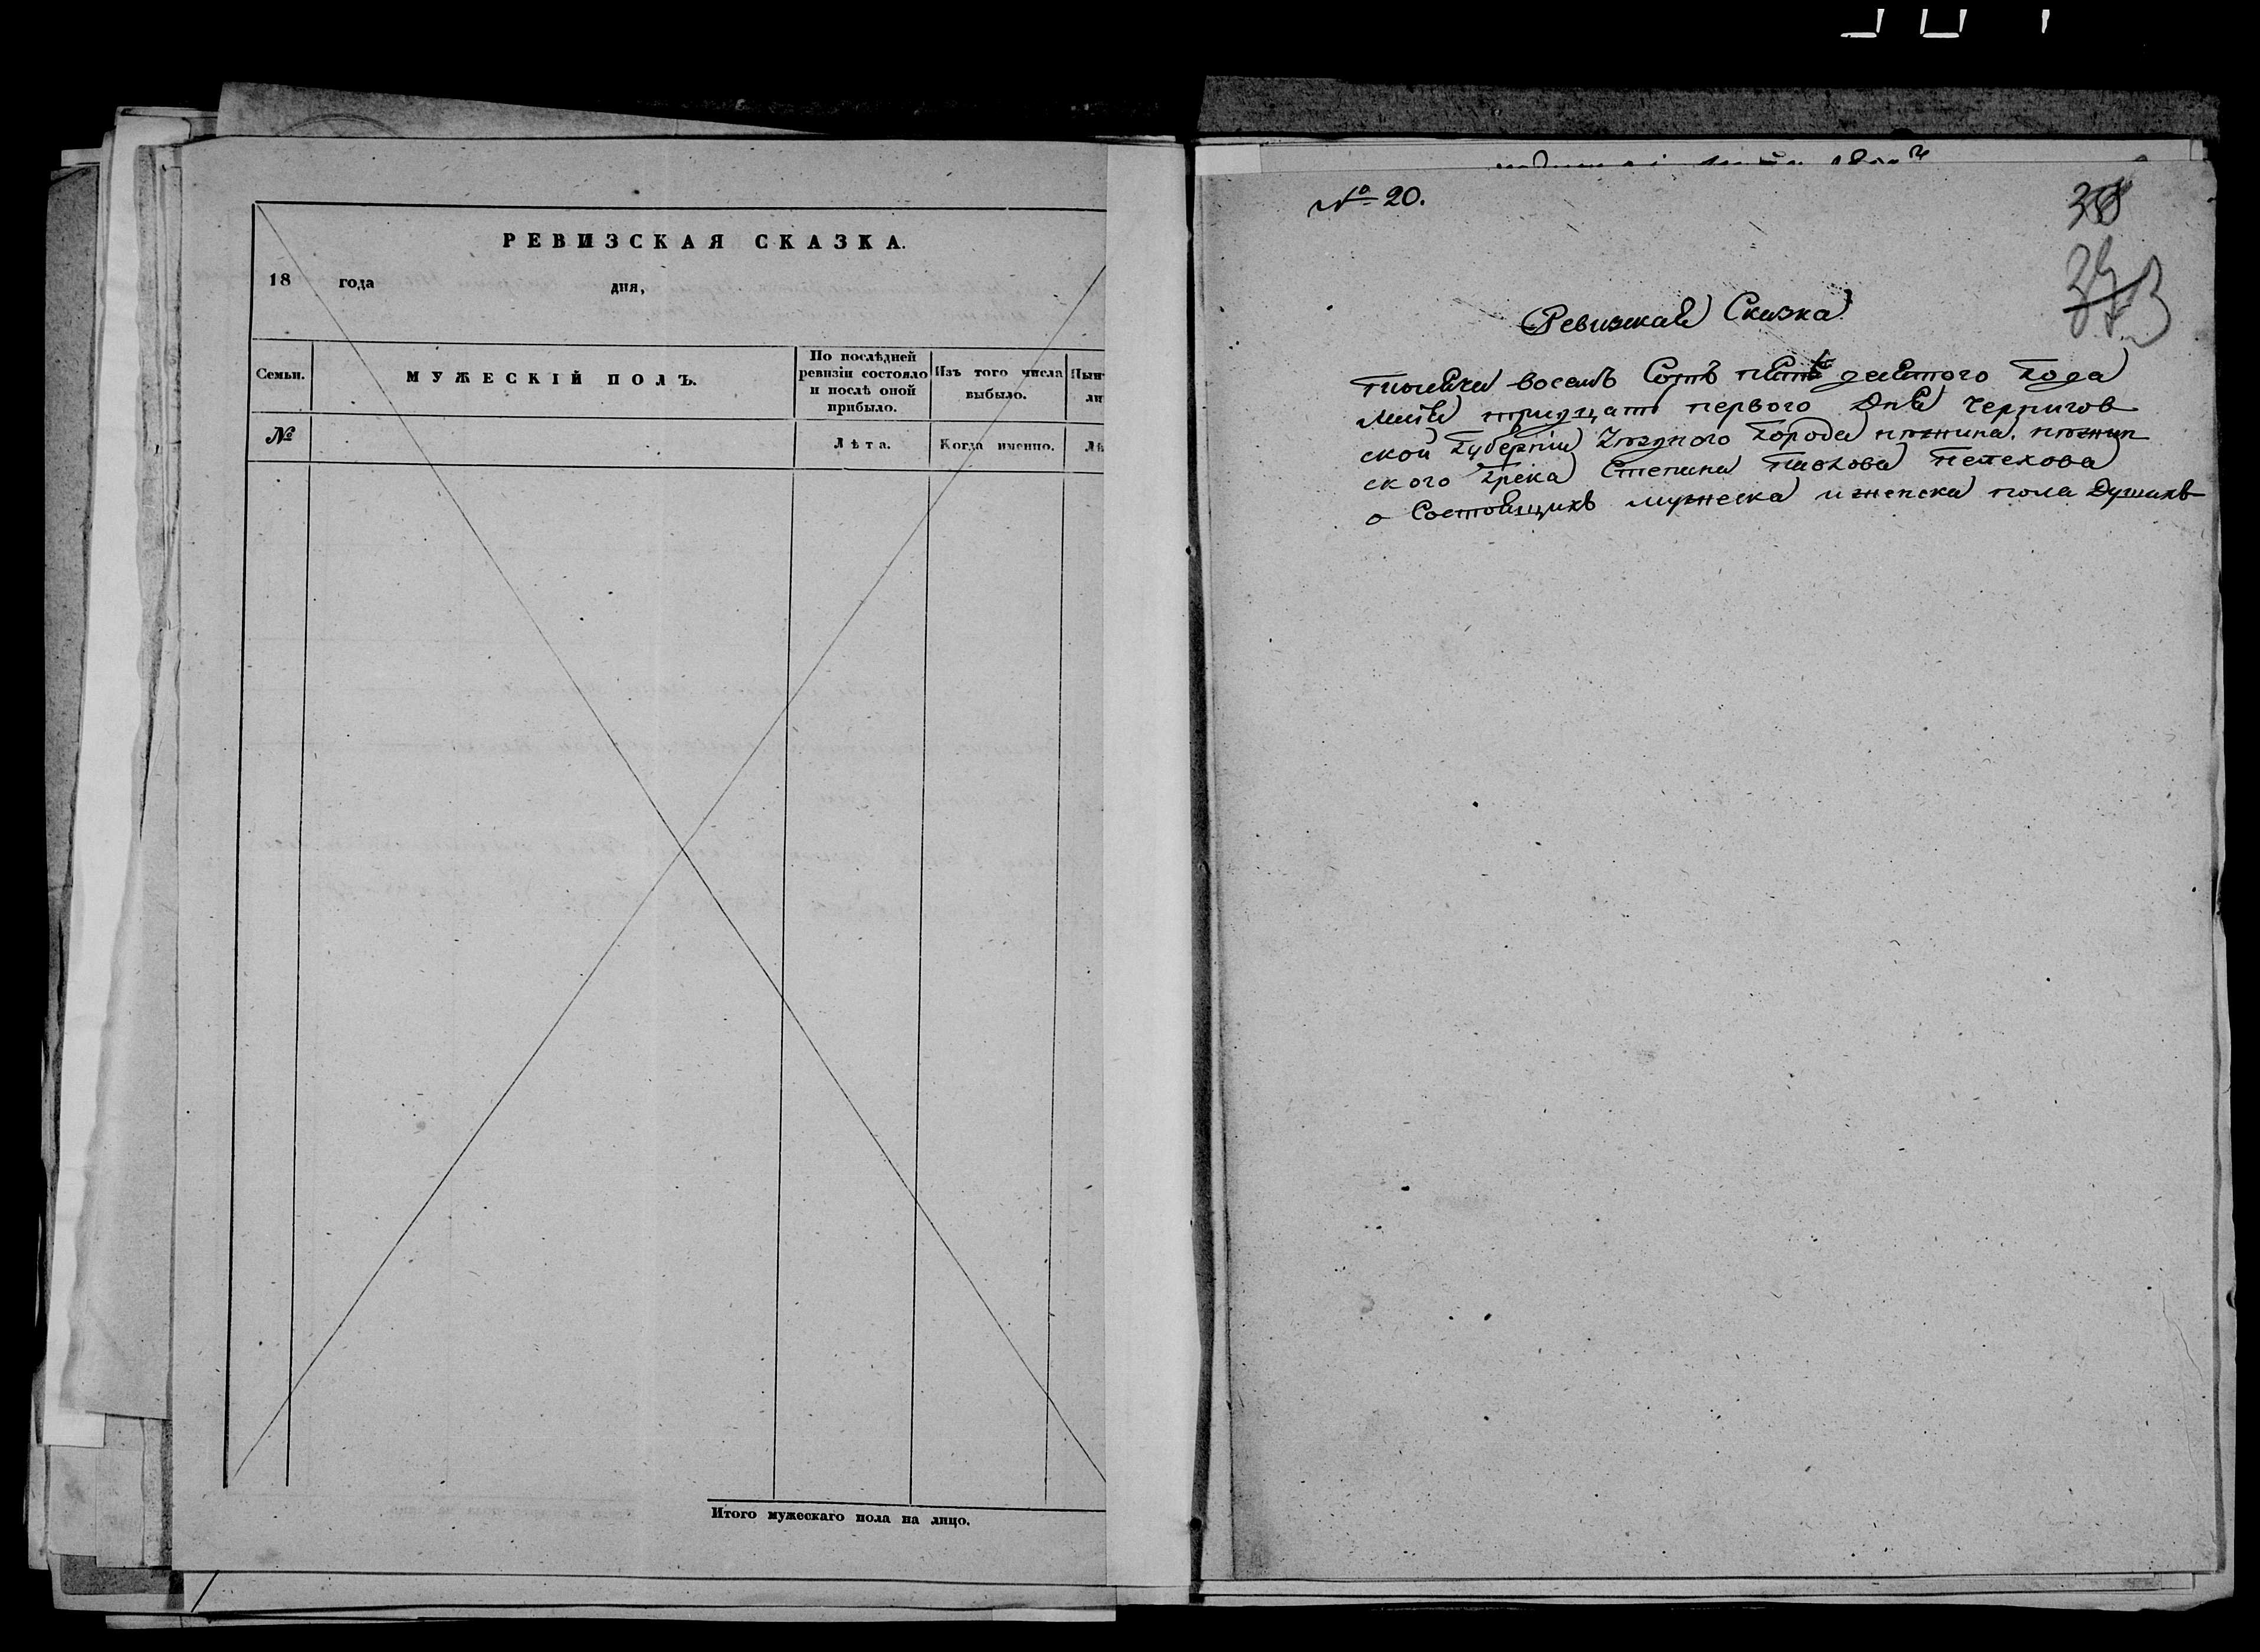 РЕВИЗСКАЯ СКАЗКА.
18 года дня,
Семьи.
МУЖЕСКІЙ ПОЛЪ.
По послѣдней ревизіи состояло и послѣ оной прибыло.
Изъ того числа выбыло.
№
Лѣта.
Когда именно.
Итого мужескаго пола на лицо.
№ 20.
Ревизкая Сказка
тысяча восемь Сотъ пять десятого Года
Маія тридцать первого Дня Чернигов
ской Губерніи Уѣздного Города нѣжина. нѣжин
ского Грека Степана Павлова
о Состоящихъ мужеска и женска пола Душахъ